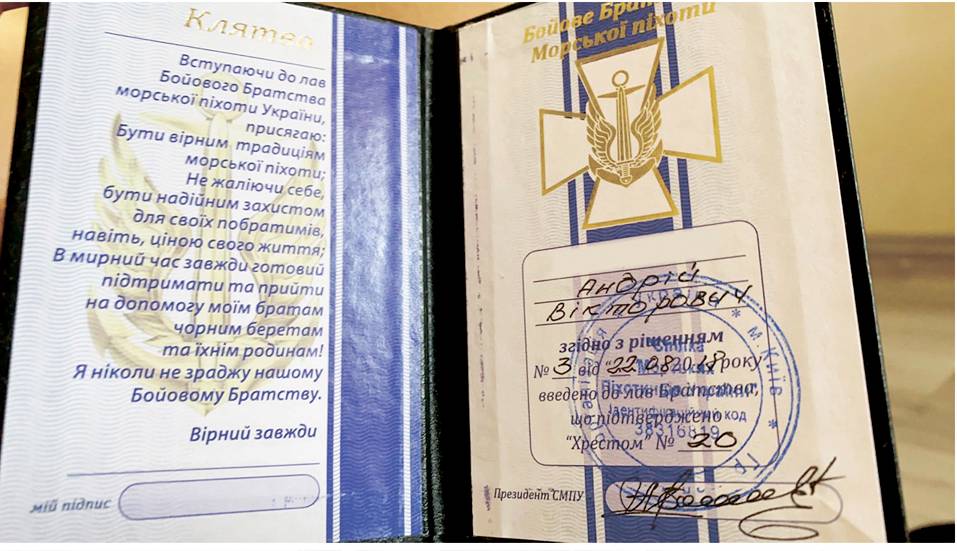 Клятва
Вступаючи до лав
Бойового Братства
морської піхоти України,
присягаю:
Бути вірним традиціям
морської піхоти;
Не жаліючи себе,
бути надійним захистом
для своїх побратимів,
навіть, ціною свого життя;
В мирний час завжди готовий
підтримати та прийти
на допомогу моїм братам
чорним беретам
та їхнім родинам!
Я ніколи не зраджу нашому
Бойовому Братству.
Вірний завжди
мій підпис
Бойове
Морської піхоти
Андрій
Вікторович
згідно з рішенням
№ 3 від "22.08.2018 року
введено до лав Братства,
що підтверджено
"Хрестом" № 20
Президент СМПУ
* м. Київ *
Спілка
Ідентифікаційний код
38316819